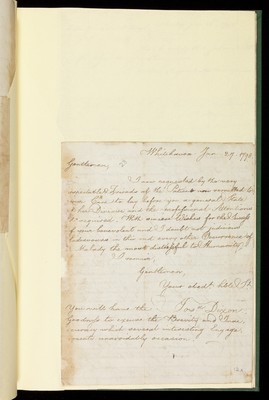 Whitehaven Jan 29 1792
Gentlemen,
I am requested by the very
respectable Friends of the Patient now remitted to
your Care to lay before you a general State
of her Disease and the professional Attendance
required. With sincere Wishes for the Success
of your Consultant and I doubt not judicious
Endeavours in this and every other Occurrence of
Malady the most distressful to Humanity,
I remain,
Gentlemen,
Your obedt
Jos. Dixon
You will have the
Goodness to excuse the Brevity and
which several interesting Engage-
ments unavoidably occasion.